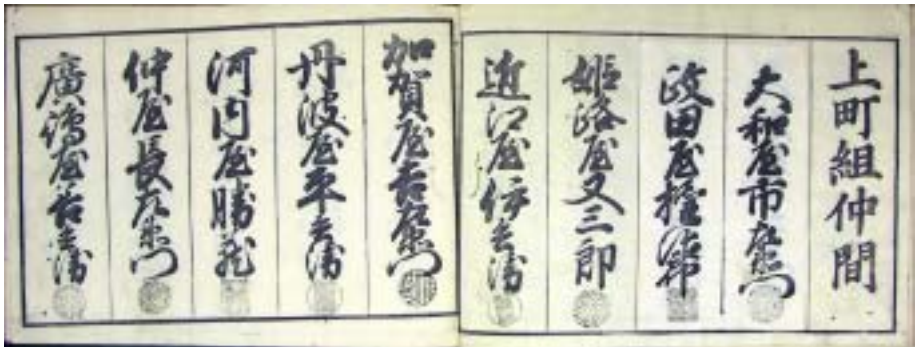 上町組仲間
大和屋市左衛門
政田屋権治郎
姫路屋又三郎
近江屋伊兵衛
加賀屋吉左衛門
丹波屋平兵衛
河内屋勝蔵
仲屋長左衛門
廣嶋屋吉兵衛